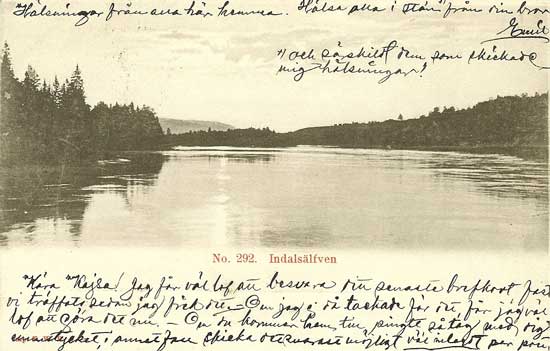 "Hälsningar från alla här hemma. Hälsa alla i stan från din bror
Emil
*) och särskildt dem som skickade
mig hälsningar!
No. 292. Indalsälfven
"Kära "Kajsa! Jag får väl lof att besvara ditt senaste brefkort fast
vi träffats sedan jag fick det. – Om jag ej då tackade för det får jag väl
lof att göra det nu. – Om du kommer hem till pingst så tag med dig
i annat fall skicka det snarast möjligt